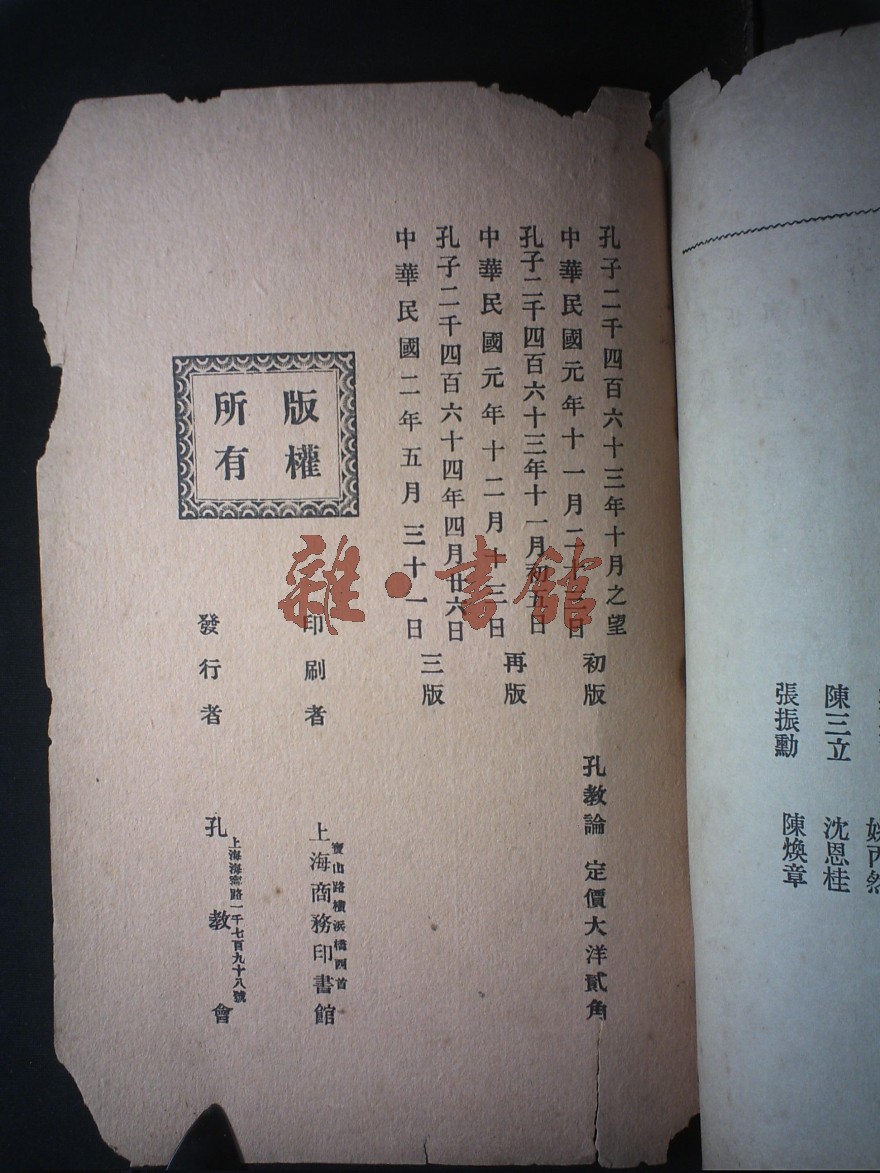 陳三立 沈恩桂
張振勳 陳煥章
孔子二千四百六十三年十月之望
中華民國元年十一月二十三日
初版
孔子二千四百六十三年十一月初五日
中華民國元年十二月十三日
再版
孔子二千四百六十四年四月廿六日
中華民國二年五月三十一日
三版
孔教論 定價大洋貳角
版權
所有
印刷者
寶山路橫浜橋西首
上海商務印書館
發行者
上海海寧路一千七百九十八號
孔教會
雜·書館